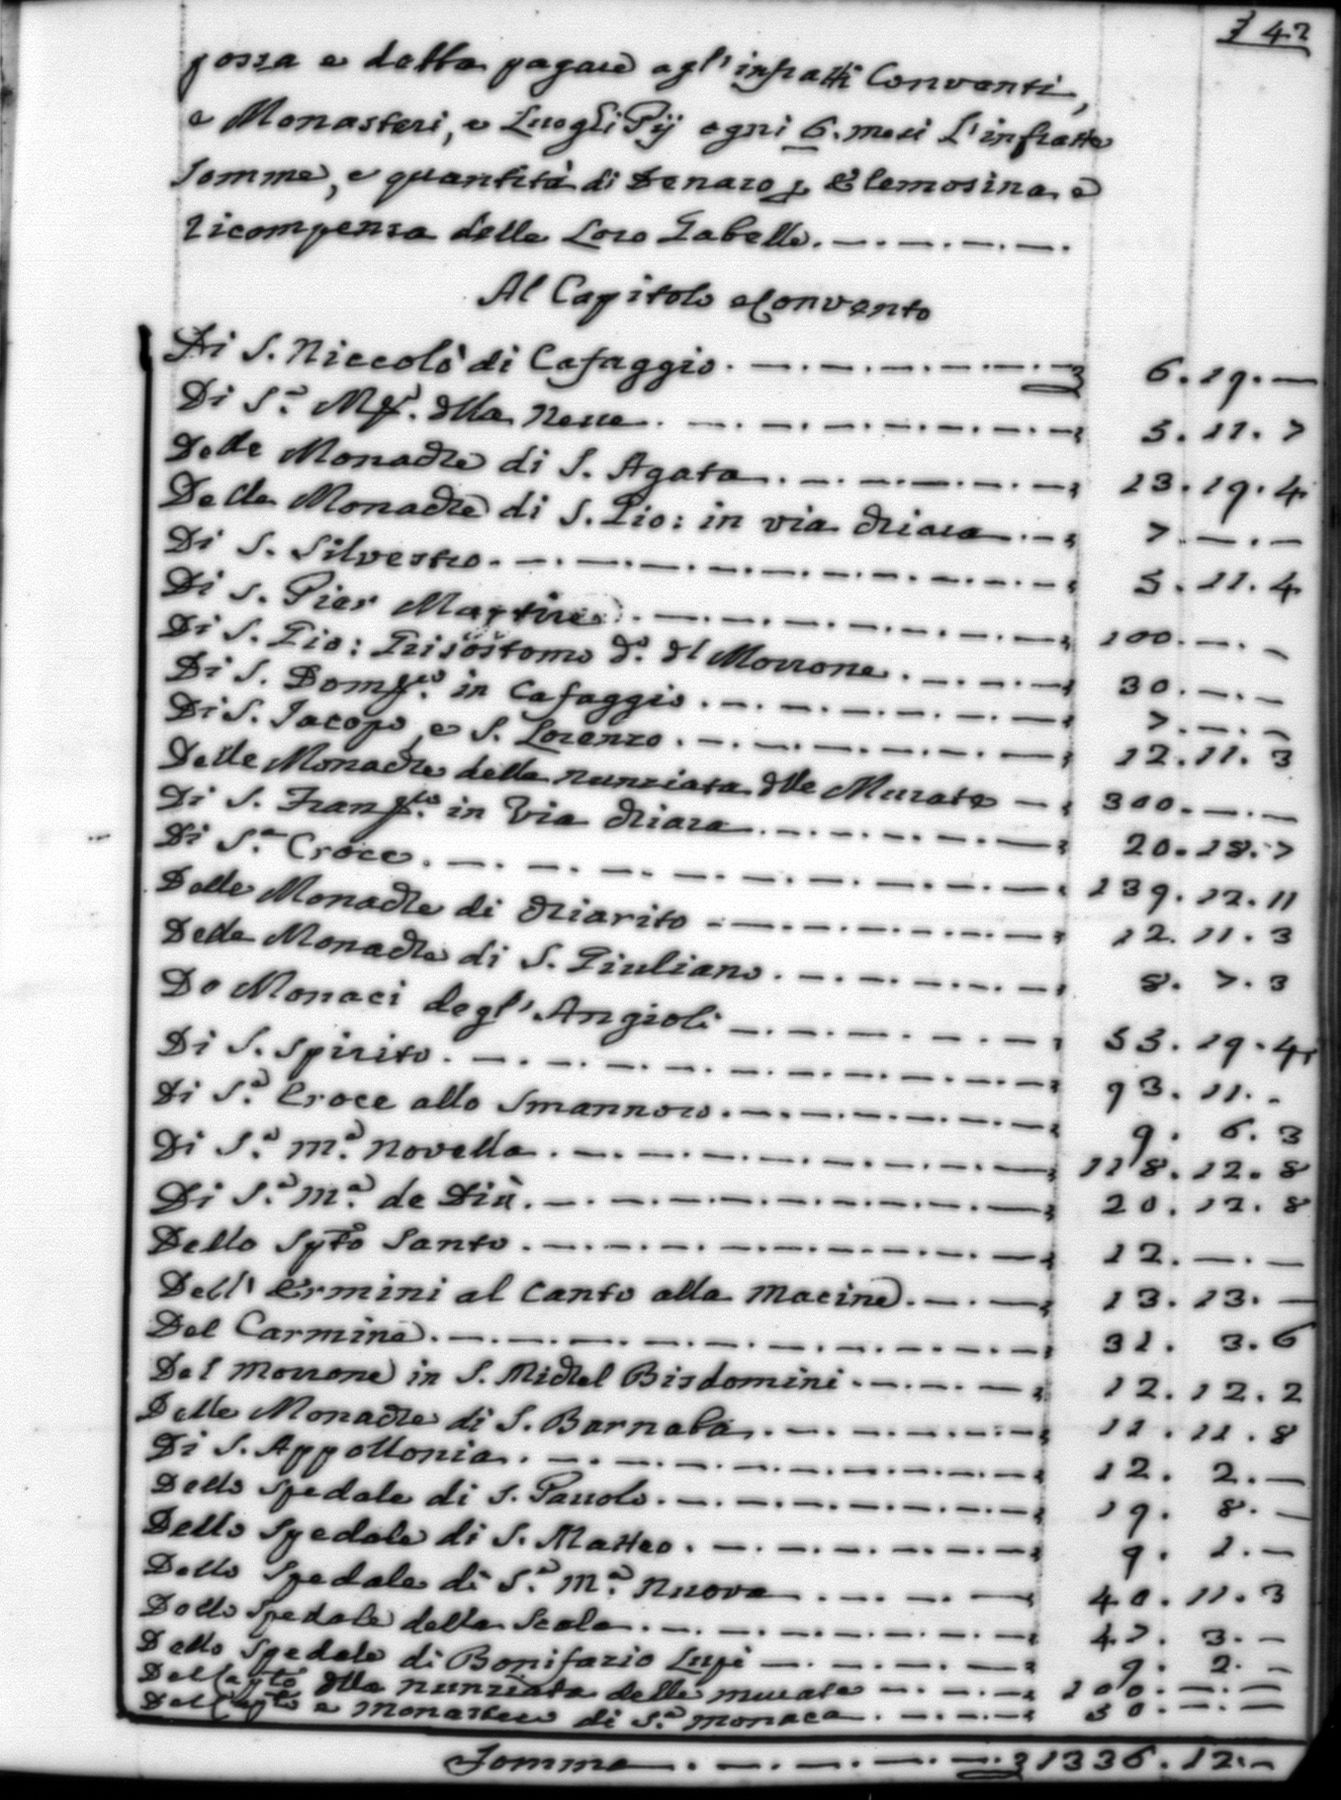 742
possa e debba pagare agl'infratti Conventi,
e Monasteri, e Luoghi Pij ogni 6. mesi l'infratte
Somme, e quantità di Denaro p Elemosina e
ricompensa delle Loro Gabelle.
Al Capitolo e Convento
Di S. Niccolò di Cafaggio. 6. 19. —
Di S.ª Mª. dlla Neve. 5. 11. 7
Delle Monache di S. Agata. 13. 19. 4
Delle Monache di S. Gio: in via chiara. 7. —. —
Di S. Silvestro. 5. 11. 4
Di S. Pier Martire. 100. —. —
Di S. Gio: Grisostomo dº. dl Morrone. 30. —. —
Di S. Domco. in Cafaggio. 7. —. —
Di S. Jacopo, e S. Lorenzo. 12. 11. 3
Delle Monache della Nunziata dlle Murate — 300. —. —
Di S. Franco. in Via chiara. 20. 18. 7
Di S.ª Croce. 139. 12. 11
Delle Monache di chiarito 12. 11. 3
Delle Monache di S. Giuliano. 8. 7. 3
De Monaci degl'Angioli 53. 19. 4
Di S. Spirito. 93. 11. -
Di S.ª Croce allo Smannoro. 9. 6. 3
Di S.ª M.ª Novella. 118. 12. 8
Di S.ª M.ª de Diù. 20. 12. 8
Dello Spto Santo. 12. —. —
Dell'Ermini al Canto alla Macine. 13. 13. —
Del Carmine. 31. 3. 6
Del Morrone in S. Michel Bisdomini. 12. 12. 2
Delle Monache di S. Barnaba. 11. 11. 8
Di S. Appollonia. 12. 2. —
Dello Spedale di S. Pauolo. 19. 8. —
Dello Spedale di S. Matteo. 9. 1. —
Dello Spedale di S.ª M.ª Nuova 40. 11. 3
Dello Spedale della Scala. 47. 3. —
Dello Spedale di Bonifazio Lupi — 9. 2. —
Del Capto dlla Nunziata delle murate 100. —. —
Del Capto e Monastero di S.ª Monaca. 50. —. —
Somma. 1336. 12. —